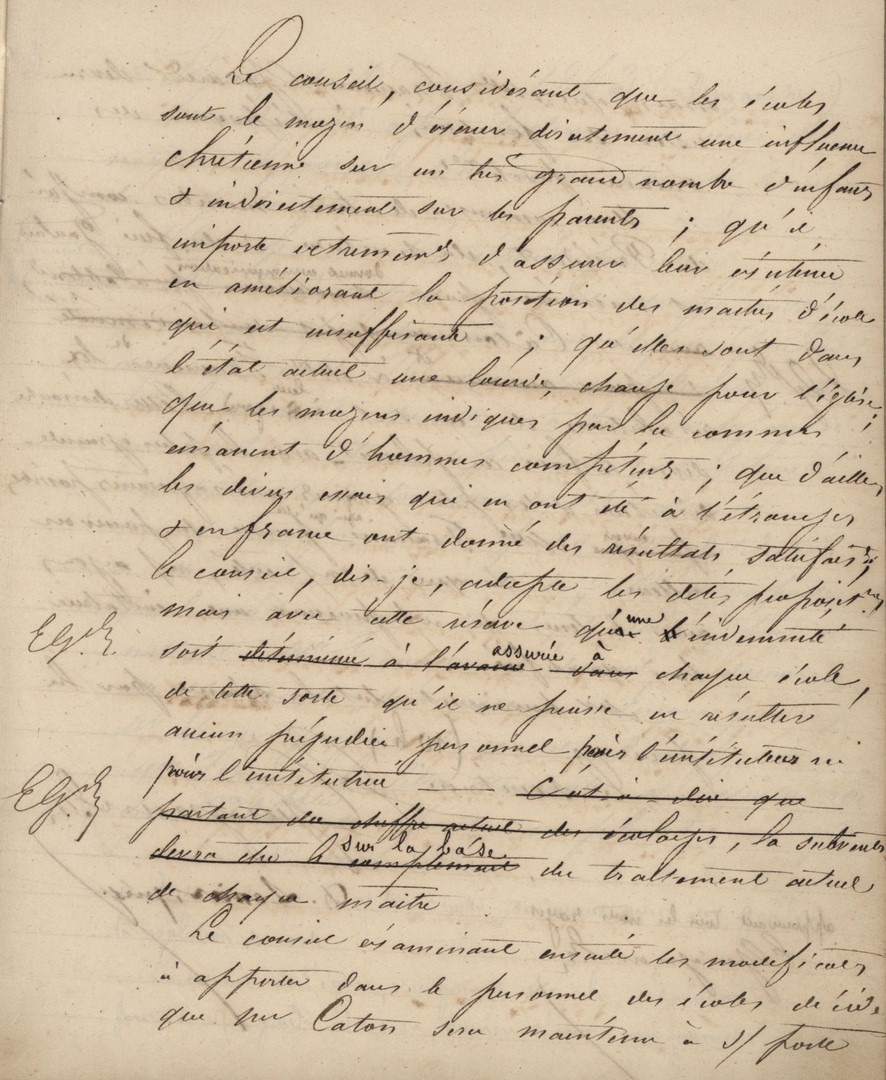 Le conseil, considérant que les écoles
sont le moyen d'exercer directement une influence
chrétienne sur un très grand nombre d'enfants
& indirectement sur les parents ; qu'il
importe extremem.t d'assurer leur existence
en améliorant la position des maîtres d'école
qui est insuffisante ; qu'elles sont dans
l'état actuel une lourde charge pour l'église ;
que les moyens indiqués par la commis
émanent d'hommes compétents ; que d'aille
les divers essais qui en ont été à l'étranger
& en france ont donné des résultats satisfais.ts ;
le conseil, dis-je, adopte les dites proposit.ns
mais avec cette réserve qu'une indemnité
EG
soit déterminée à l'avance assurée à dans chaque école,
de telle sorte qu'il ne puisse en résulter
aucun préjudice personnel pour l'instituteur ni
pour l'institutrice — c'est-à-dire que
EG
partant du chiffre actuel des écolages, la subvent
devra être le complément sur la base du traitement actuel
de chaque maître
Le conseil examinant ensuite les modificat.s
à apporter dans le personnel des écoles décide
que mr Caton sera maintenu à s/ poste